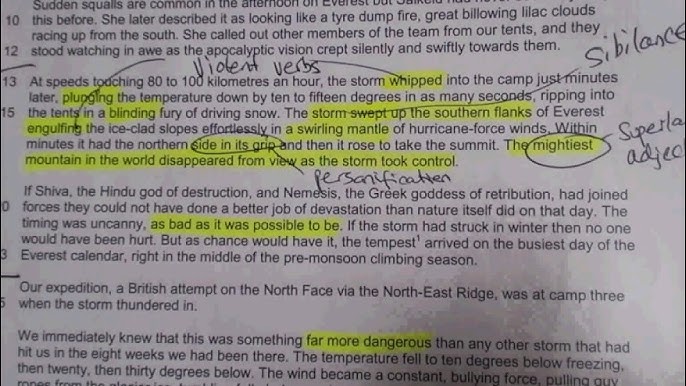 Sudden squalls are common in the afternoon on Everest but
10 this before. She later described it as looking like a tyre dump fire, great billowing lilac clouds
racing up from the south. She called out other members of the team from our tents, and they
12 stood watching in awe as the apocalyptic vision crept silently and swiftly towards them.
Sibilance
Violent verbs
13 At speeds touching 80 to 100 kilometres an hour, the storm whipped into the camp just minutes
later, plunging the temperature down by ten to fifteen degrees in as many seconds, ripping into
15 the tents in a blinding fury of driving snow. The storm swept up the southern flanks of Everest
engulfing the ice-clad slopes effortlessly in a swirling mantle of hurricane-force winds. Within
minutes it had the northern side in its grip and then it rose to take the summit. The mightiest
Superla
adjec
mountain in the world disappeared from view as the storm took control.
personification
If Shiva, the Hindu god of destruction, and Nemesis, the Greek goddess of retribution, had joined
0 forces they could not have done a better job of devastation than nature itself did on that day. The
timing was uncanny, as bad as it was possible to be. If the storm had struck in winter then no one
would have been hurt. But as chance would have it, the tempest¹ arrived on the busiest day of the
3 Everest calendar, right in the middle of the pre-monsoon climbing season.
Our expedition, a British attempt on the North Face via the North-East Ridge, was at camp three
5 when the storm thundered in.
We immediately knew that this was something far more dangerous than any other storm that had
hit us in the eight weeks we had been there. The temperature fell to ten degrees below freezing,
then twenty, then thirty degrees below. The wind became a constant, bullying force, pulling guy
ropes from the